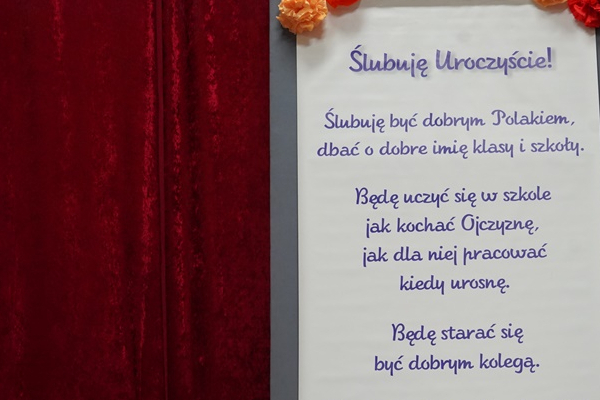 Ślubuję Uroczyście!
Ślubuję być dobrym Polakiem,
dbać o dobre imię klasy i szkoły.
Będę uczyć się w szkole
jak kochać Ojczyznę,
jak dla niej pracować
kiedy urosnę.
Będę starać się
być dobrym kolegą.